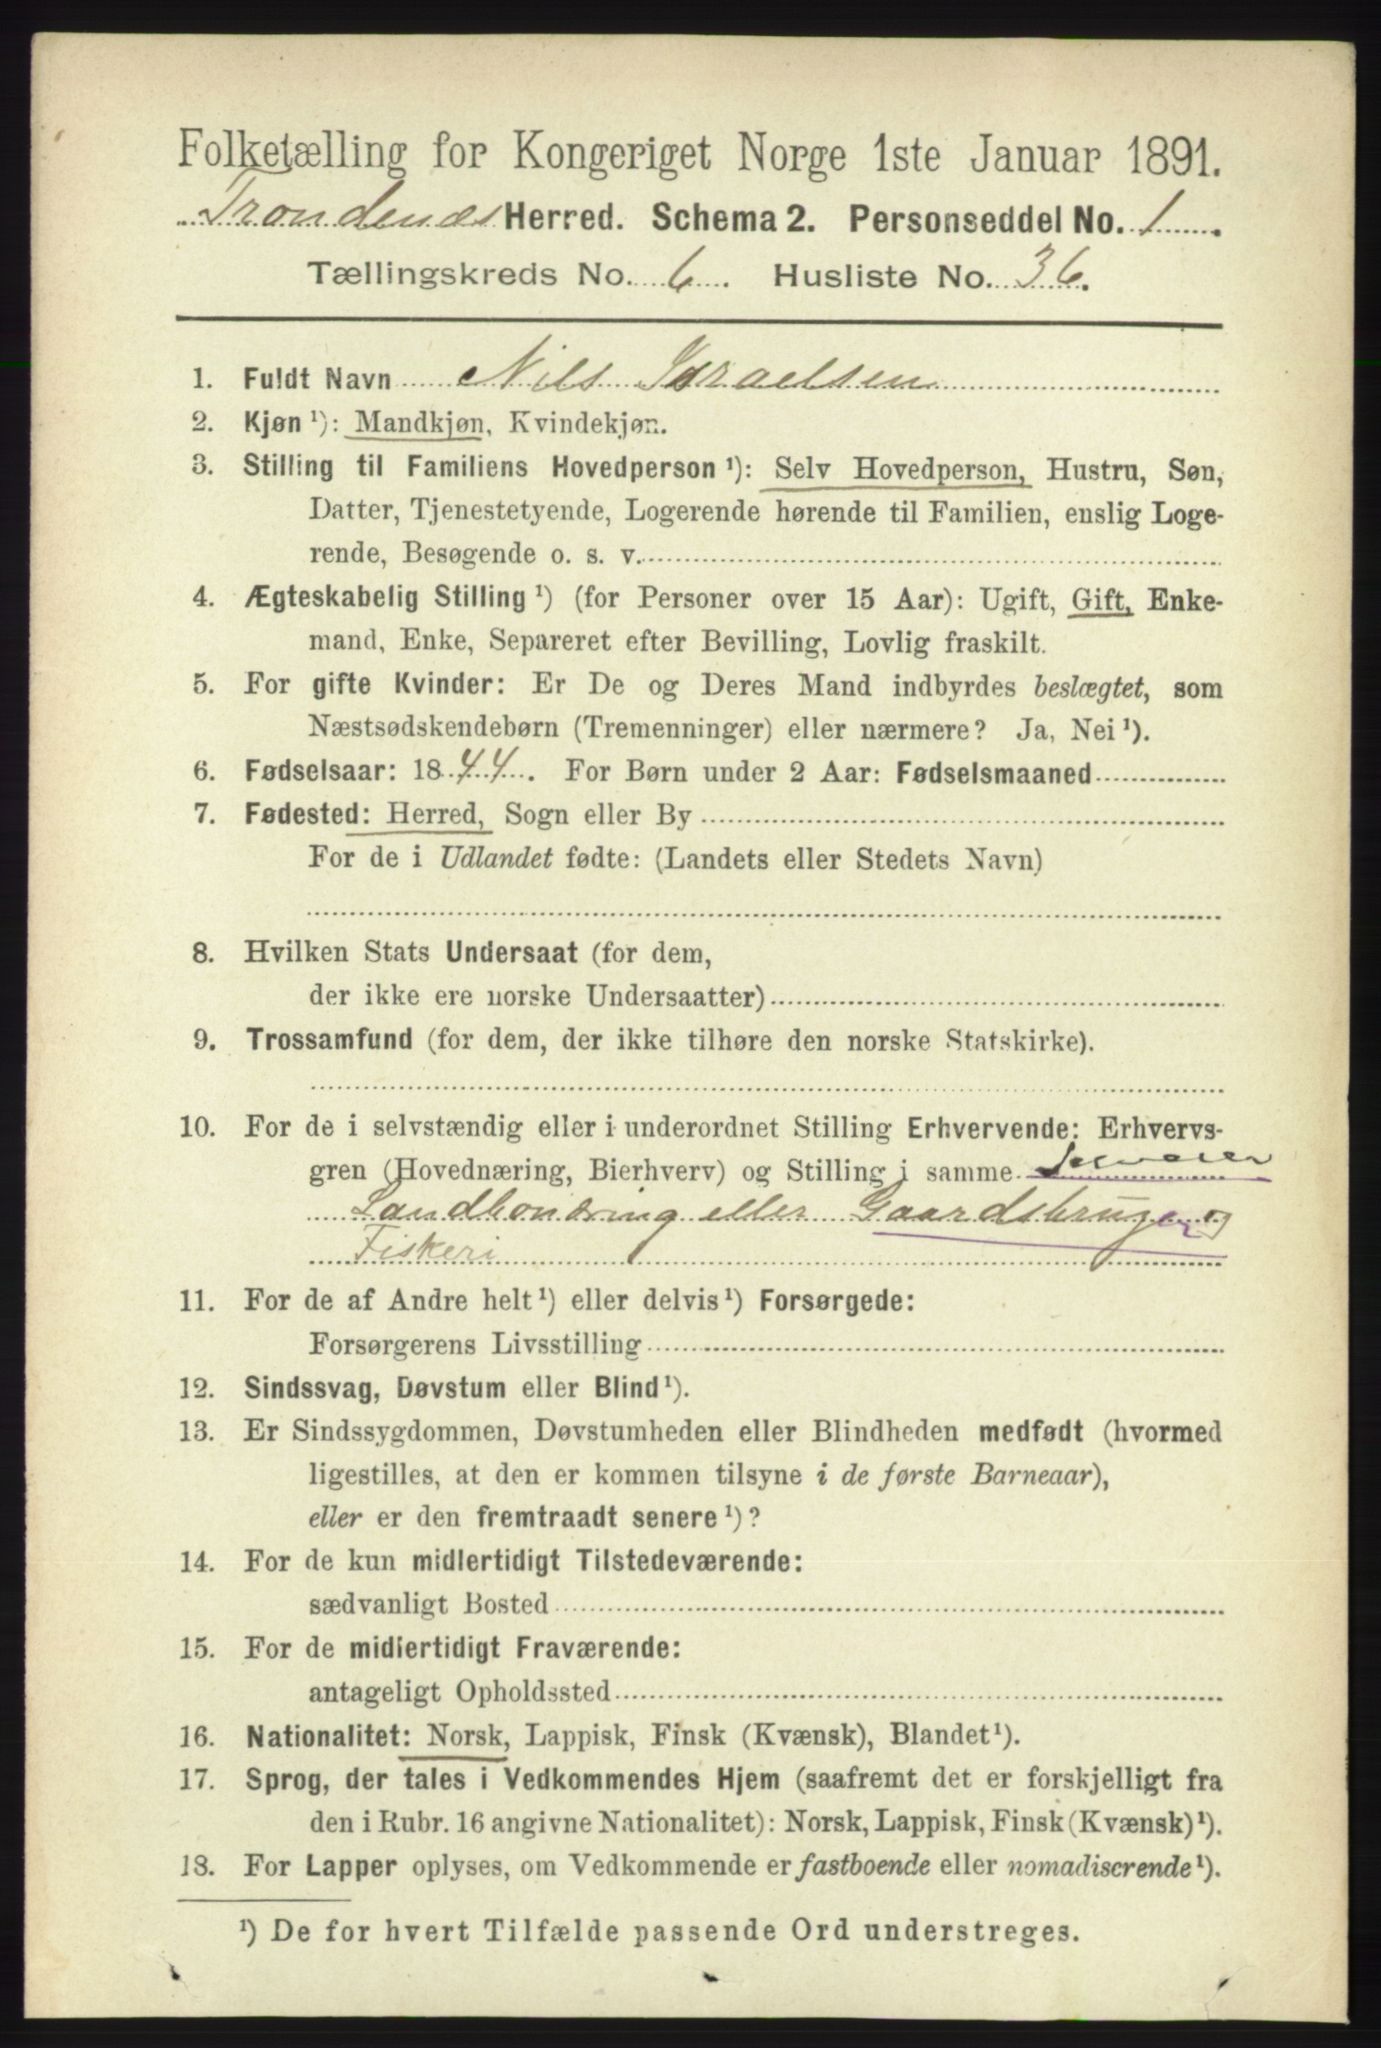 Folketælling for Kongeriget Norge 1ste Januar 1891.
Trondenæs Herred. Schema 2. Personseddel No. 1.
Tællingskreds No. 6. Husliste No. 36.
1. Fuldt Navn Nils Israelsen
2. Kjøn¹): Mandkjøn, Kvindekjøn.
3. Stilling til Familiens Hovedperson¹): Selv Hovedperson, Hustru, Søn,
Datter, Tjenestetyende, Logerende hørende til Familien, enslig Loge-
rende, Besøgende o. s. v.
4. Ægteskabelig Stilling¹) (for Personer over 15 Aar): Ugift, Gift, Enke-
mand, Enke, Separeret efter Bevilling, Lovlig fraskilt.
5. For gifte Kvinder: Er De og Deres Mand indbyrdes beslægtet, som
Næstsødskendebørn (Tremenninger) eller nærmere? Ja, Nei¹).
6. Fødselsaar: 1844. For Børn under 2 Aar: Fødselsmaaned
7. Fødested: Herred, Sogn eller By
For de i Udlandet fødte: (Landets eller Stedets Navn)
8. Hvilken Stats Undersaat (for dem,
der ikke ere norske Undersaatter)
9. Trossamfund (for dem, der ikke tilhøre den norske Statskirke).
10. For de i selvstændig eller i underordnet Stilling Erhvervende: Erhvervs-
gren (Hovednæring, Bierhverv) og Stilling i samme Selveier
Landhonæring eller Gaardsbruger og
Fiskeri
11. For de af Andre helt¹) eller delvis¹) Forsørgede:
Forsørgerens Livsstilling
12. Sindssvag, Døvstum eller Blind¹).
13. Er Sindssygdommen, Døvstumheden eller Blindheden medfødt (hvormed
ligestilles, at den er kommen tilsyne i de første Barneaar),
eller er den fremtraadt senere¹)?
14. For de kun midlertidigt Tilstedeværende:
sædvanligt Bosted
15. For de midlertidigt Fraværende:
antageligt Opholdssted
16. Nationalitet: Norsk, Lappisk, Finsk (Kvænsk), Blandet¹).
17. Sprog, der tales i Vedkommendes Hjem (saafremt det er forskjelligt fra
den i Rubr. 16 angivne Nationalitet): Norsk, Lappisk, Finsk (Kvænsk)¹).
18. For Lapper oplyses, om Vedkommende er fastboende eller nomadiserende¹).
¹) De for hvert Tilfælde passende Ord understreges.